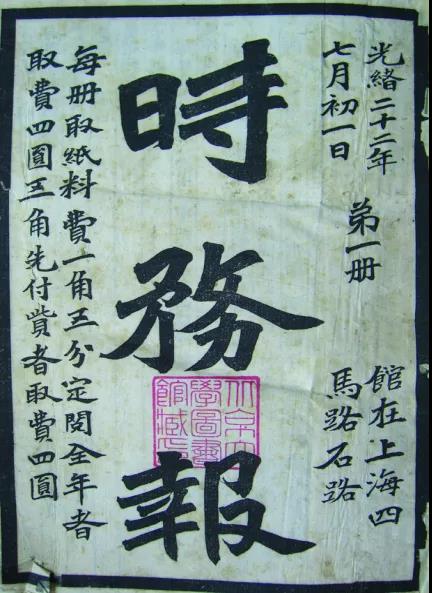 光緒二十二年
七月初一日
弟一册
館在上海四
馬路石路
時務報
每册取紙料費一角五分定閱全年者
取費四圓五角先付貲者取費四圓
北京大
學圖書
館藏